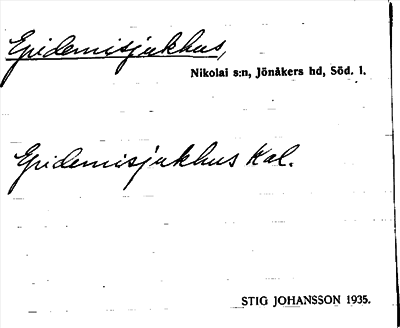 Epidemisjukhus,
Nikolai s:n, Jönåkers hd, Söd. l.
Epidemisjukhus Kal.
STIG JOHANSSON 1935.